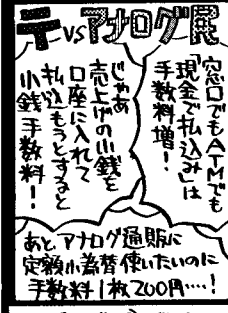 〒vsアナログ展
窓口でもATMでも
「現金で払込み」は
手数料増!
じゃあ
売上げの小銭を
口座に入れて
払込もうとすると
小銭手数料!
あとアナログ通販に
定額小為替使いたいのに
手数料1枚200円…!